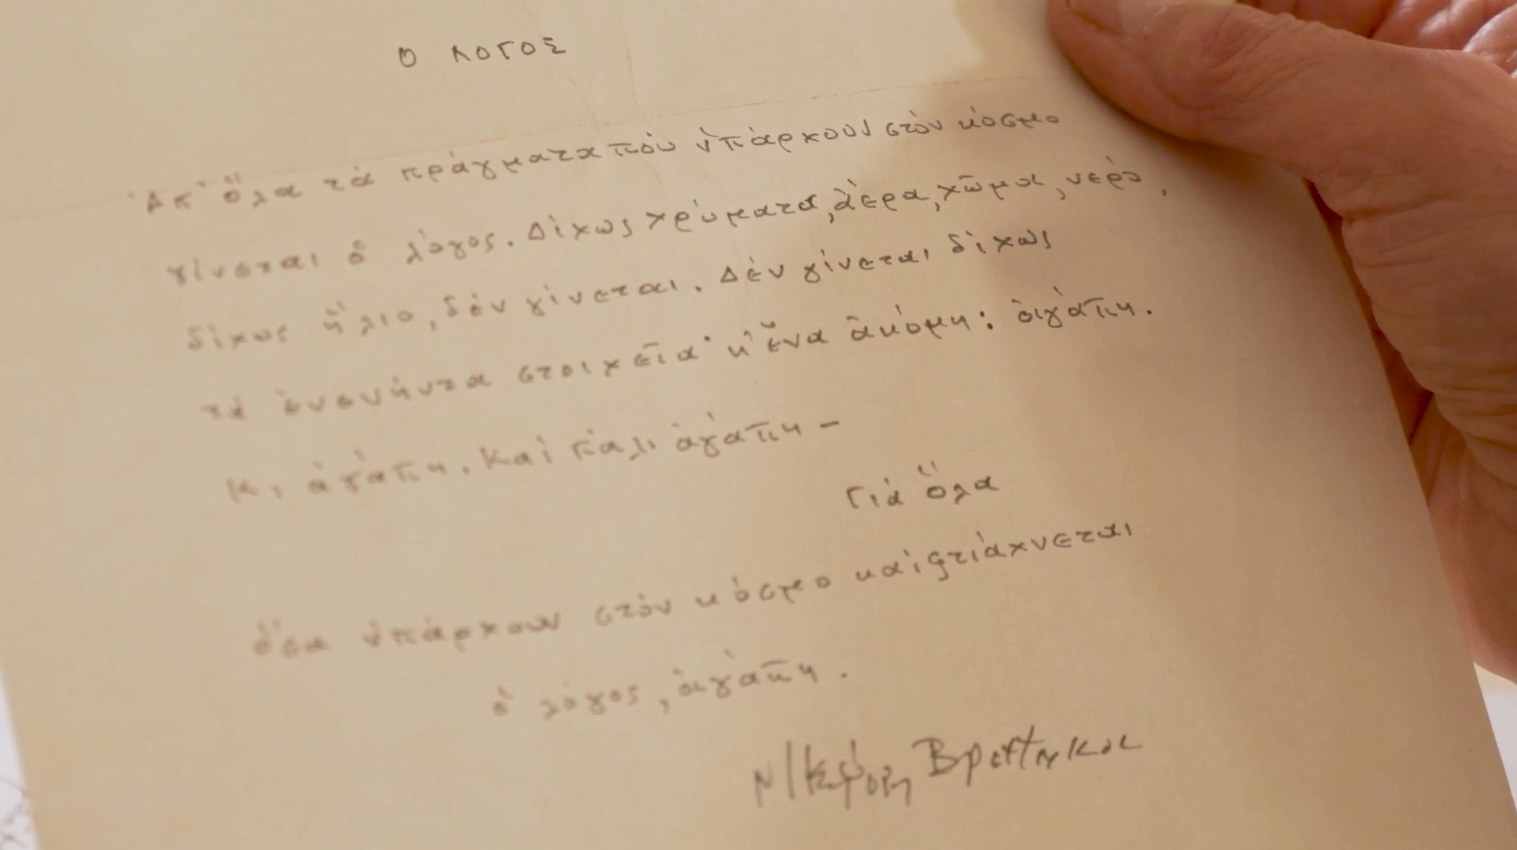 Ο ΛΟΓΟΣ
Ἀπ' ὅλα τά πράγματα πού ὑπάρχουν στόν κόσμο
γίνεται ὁ λόγος. Δίχως χρώματα, ἀέρα, χῶμα, νερό,
δίχως ἥλιο, δέν γίνεται. Δέν γίνεται δίχως
τά ἐνενήντα στοιχεῖα· κ' ἕνα ἀκόμη: ἀγάπη.
Κι ἀγάπη. Καί πάλι ἀγάπη –
Γιά ὅλα
ὅσα ὑπάρχουν στόν κόσμο καί φτιάχνεται
ὁ λόγος, ἀγάπη.
Νικηφόρος Βρεττάκος